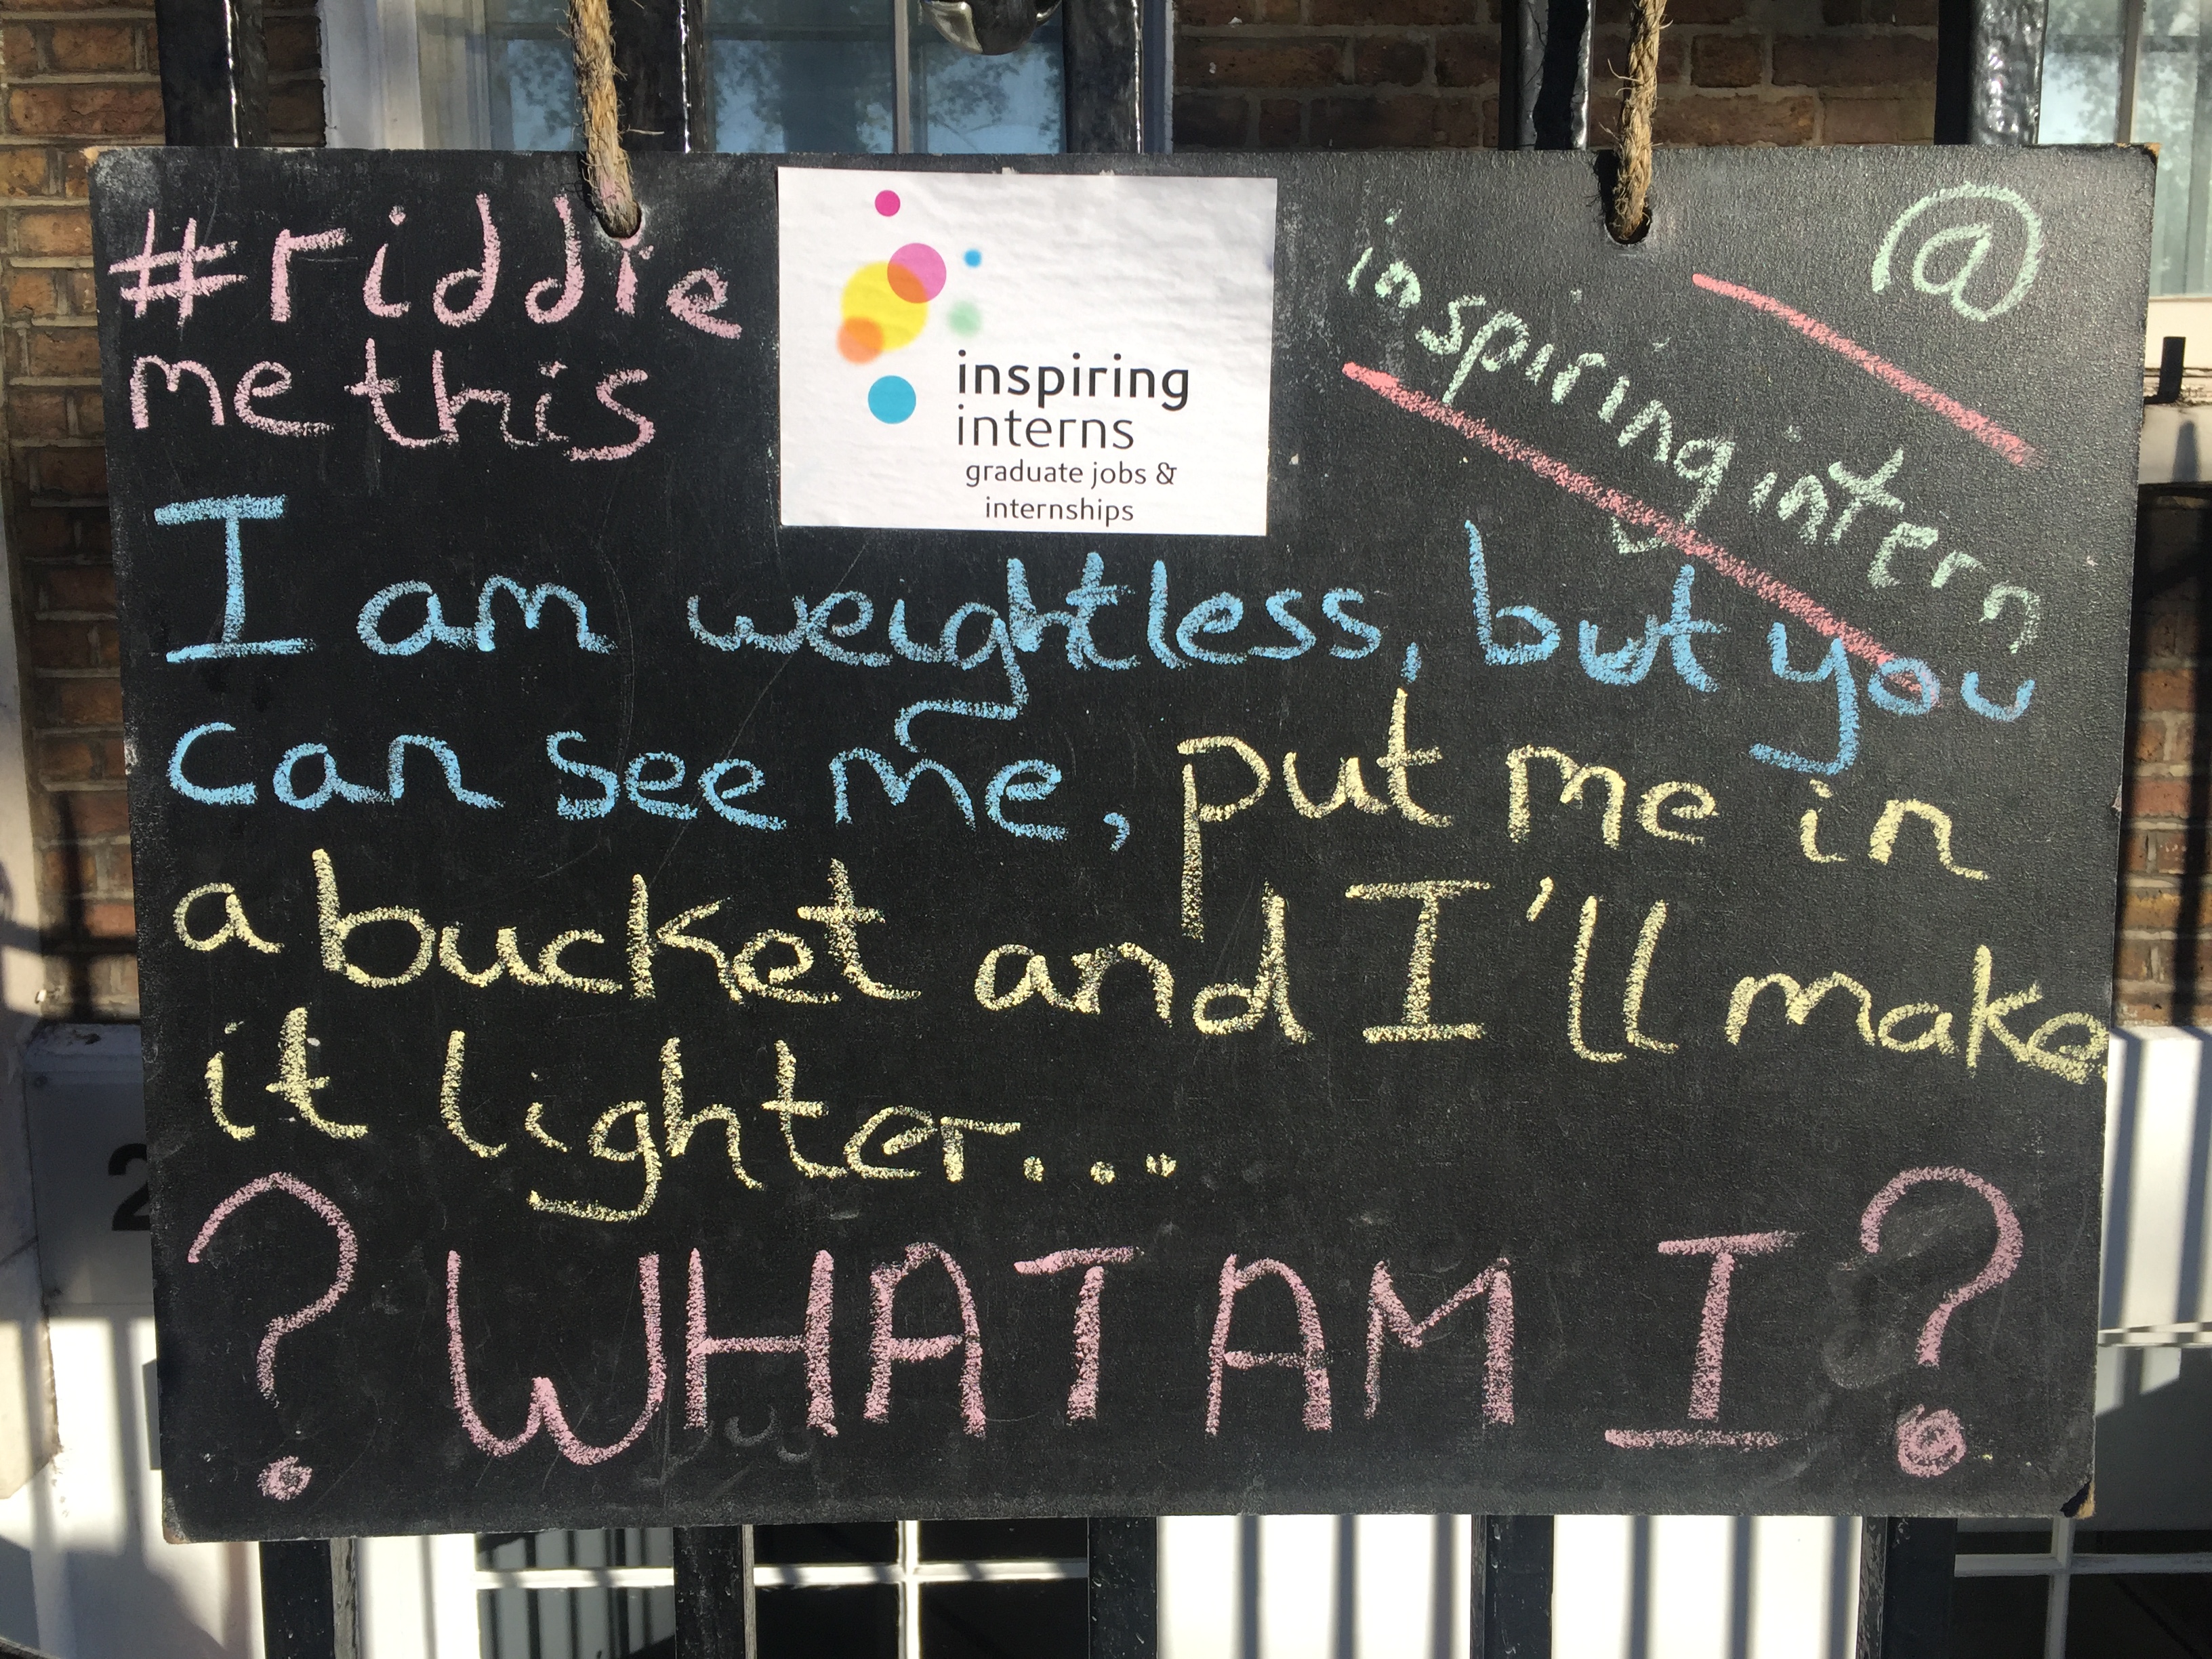 #riddle
me this
inspiring
interns
graduate jobs &
internships
@
inspiringintern
I am weightless, but you
can see me, put me in
a bucket and I'll make
it lighter...
? WHAT AM I ?
2